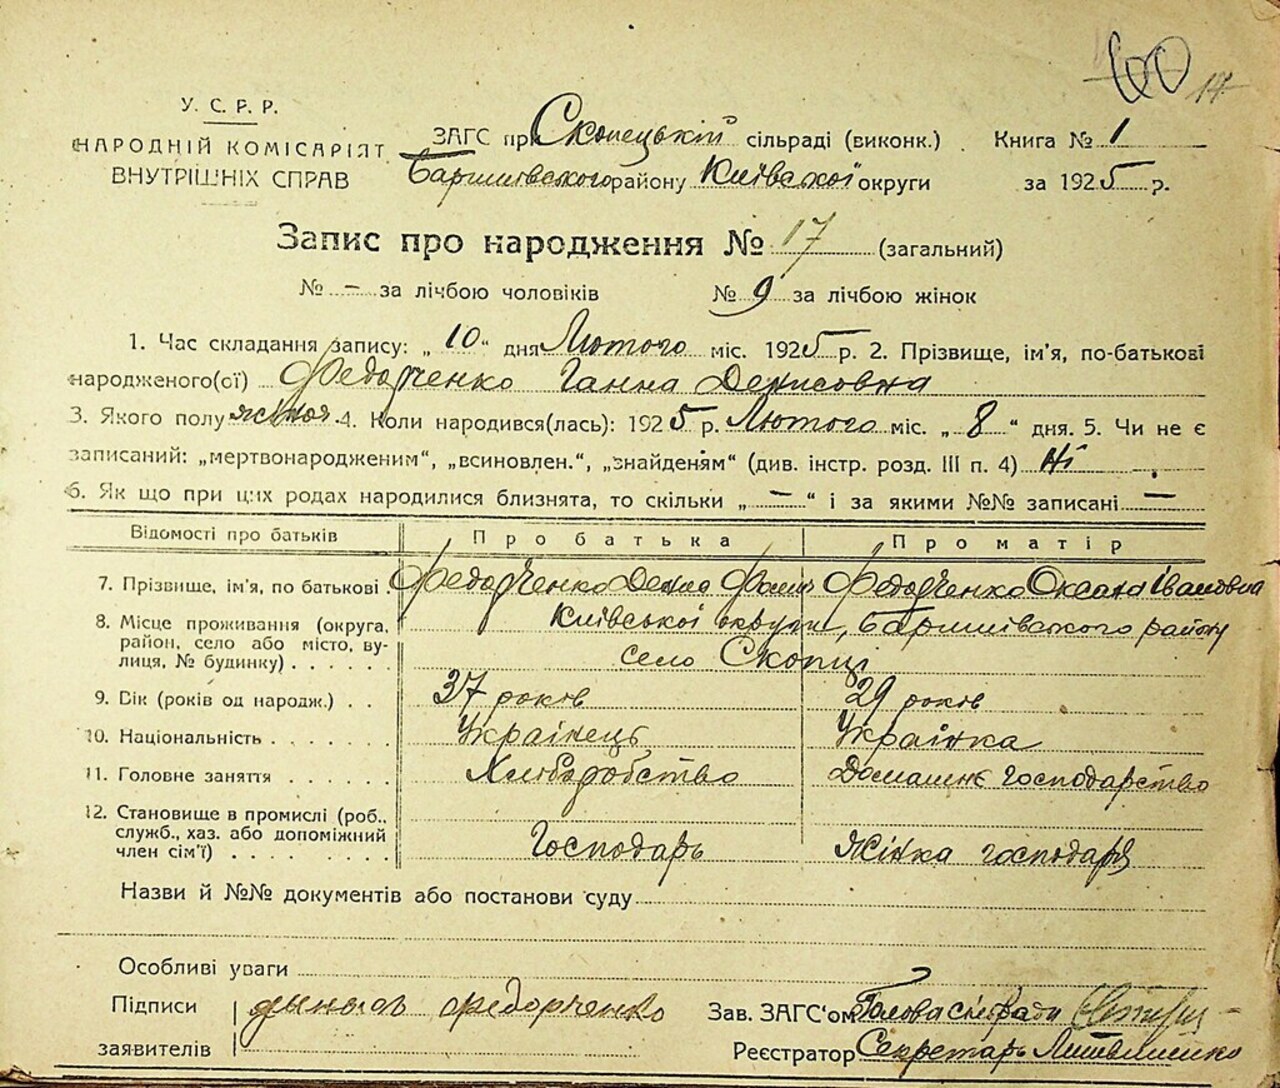 400 17
У. С. Р. Р.
НАРОДНІЙ КОМІСАРІЯТ
ВНУТРІШНІХ СПРАВ
ЗАГС при Скопецькій сільраді (виконк.) Книга № 1
Баришівського району Київської округи за 1925 р.
Запис про народження № 17 (загальний)
№ – за лічбою чоловіків № 9 за лічбою жінок
1. Час складання запису: „10“ дня Лютого міс. 1925 р. 2. Прізвище, ім'я, по-батькові
народженого(ої) Федорченко Ганна Денисовна
3. Якого полу жіноч. 4. Коли народився(лась): 1925 р. Лютого міс. „8“ дня. 5. Чи не є
записаний: „мертвонародженим“, „всиновлен.“, „знайденям“ (див. інстр. розд. III п. 4) Ні
6. Як що при цих родах народилися близнята, то скільки „–“ і за якими №№ записані –
Відомості про батьків Про батька Про матір
7. Прізвище, ім'я, по батькові. Федорченко Денис Федорченко Оксана Івановна
8. Місце проживання (округа, Київської округи, Баришівського району
район, село або місто, ву-
лиця, № будинку) . . . . . . село Скопці
9. Вік (років од народж.) . . 37 років 29 років
10. Національність . . . . . . . Українець Українка
11. Головне заняття . . . . . . Хліборобство Домашнє господарство
12. Становище в промислі (роб.,
служб., хаз. або допоміжний
член сім'ї) . . . . . . . . . Господарь Жінка господаря
Назви й №№ документів або постанови суду
Особливі уваги
Підписи Федорченко Зав. ЗАГС'ом Голова сільради
заявителів Реєстратор Секретарь